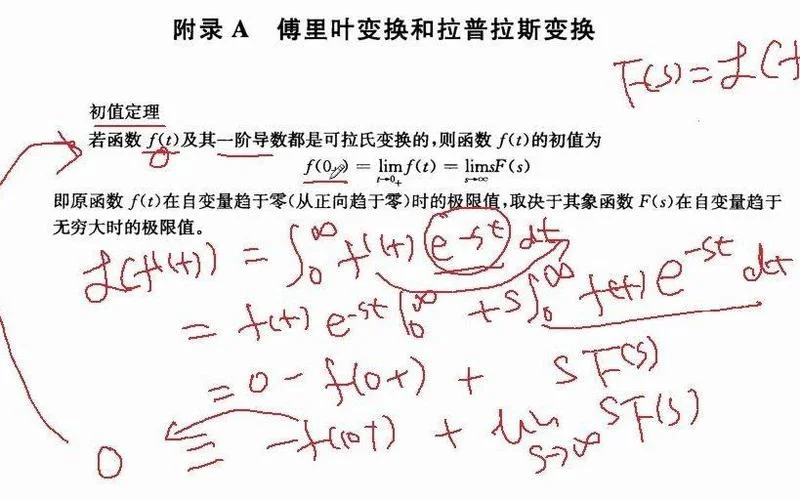 附录 A 傅里叶变换和拉普拉斯变换
F(s) = ℒ(f
初值定理
若函数 f(t)及其一阶导数都是可拉氏变换的,则函数 f(t)的初值为
f(0₊) = lim_{t→0₊} f(t) = lim_{s→∞} sF(s)
即原函数 f(t)在自变量趋于零(从正向趋于零)时的极限值,取决于其象函数 F(s)在自变量趋于
无穷大时的极限值。
ℒ(f'(t)) = ∫₀^∞ f'(t) e^{-st} dt
= f(t) e^{-st} |₀^∞ + s∫₀^∞ f(t) e^{-st} dt
= 0 - f(0+) + sF(s)
0 = -f(0+) + lim_{s→∞} sF(s)